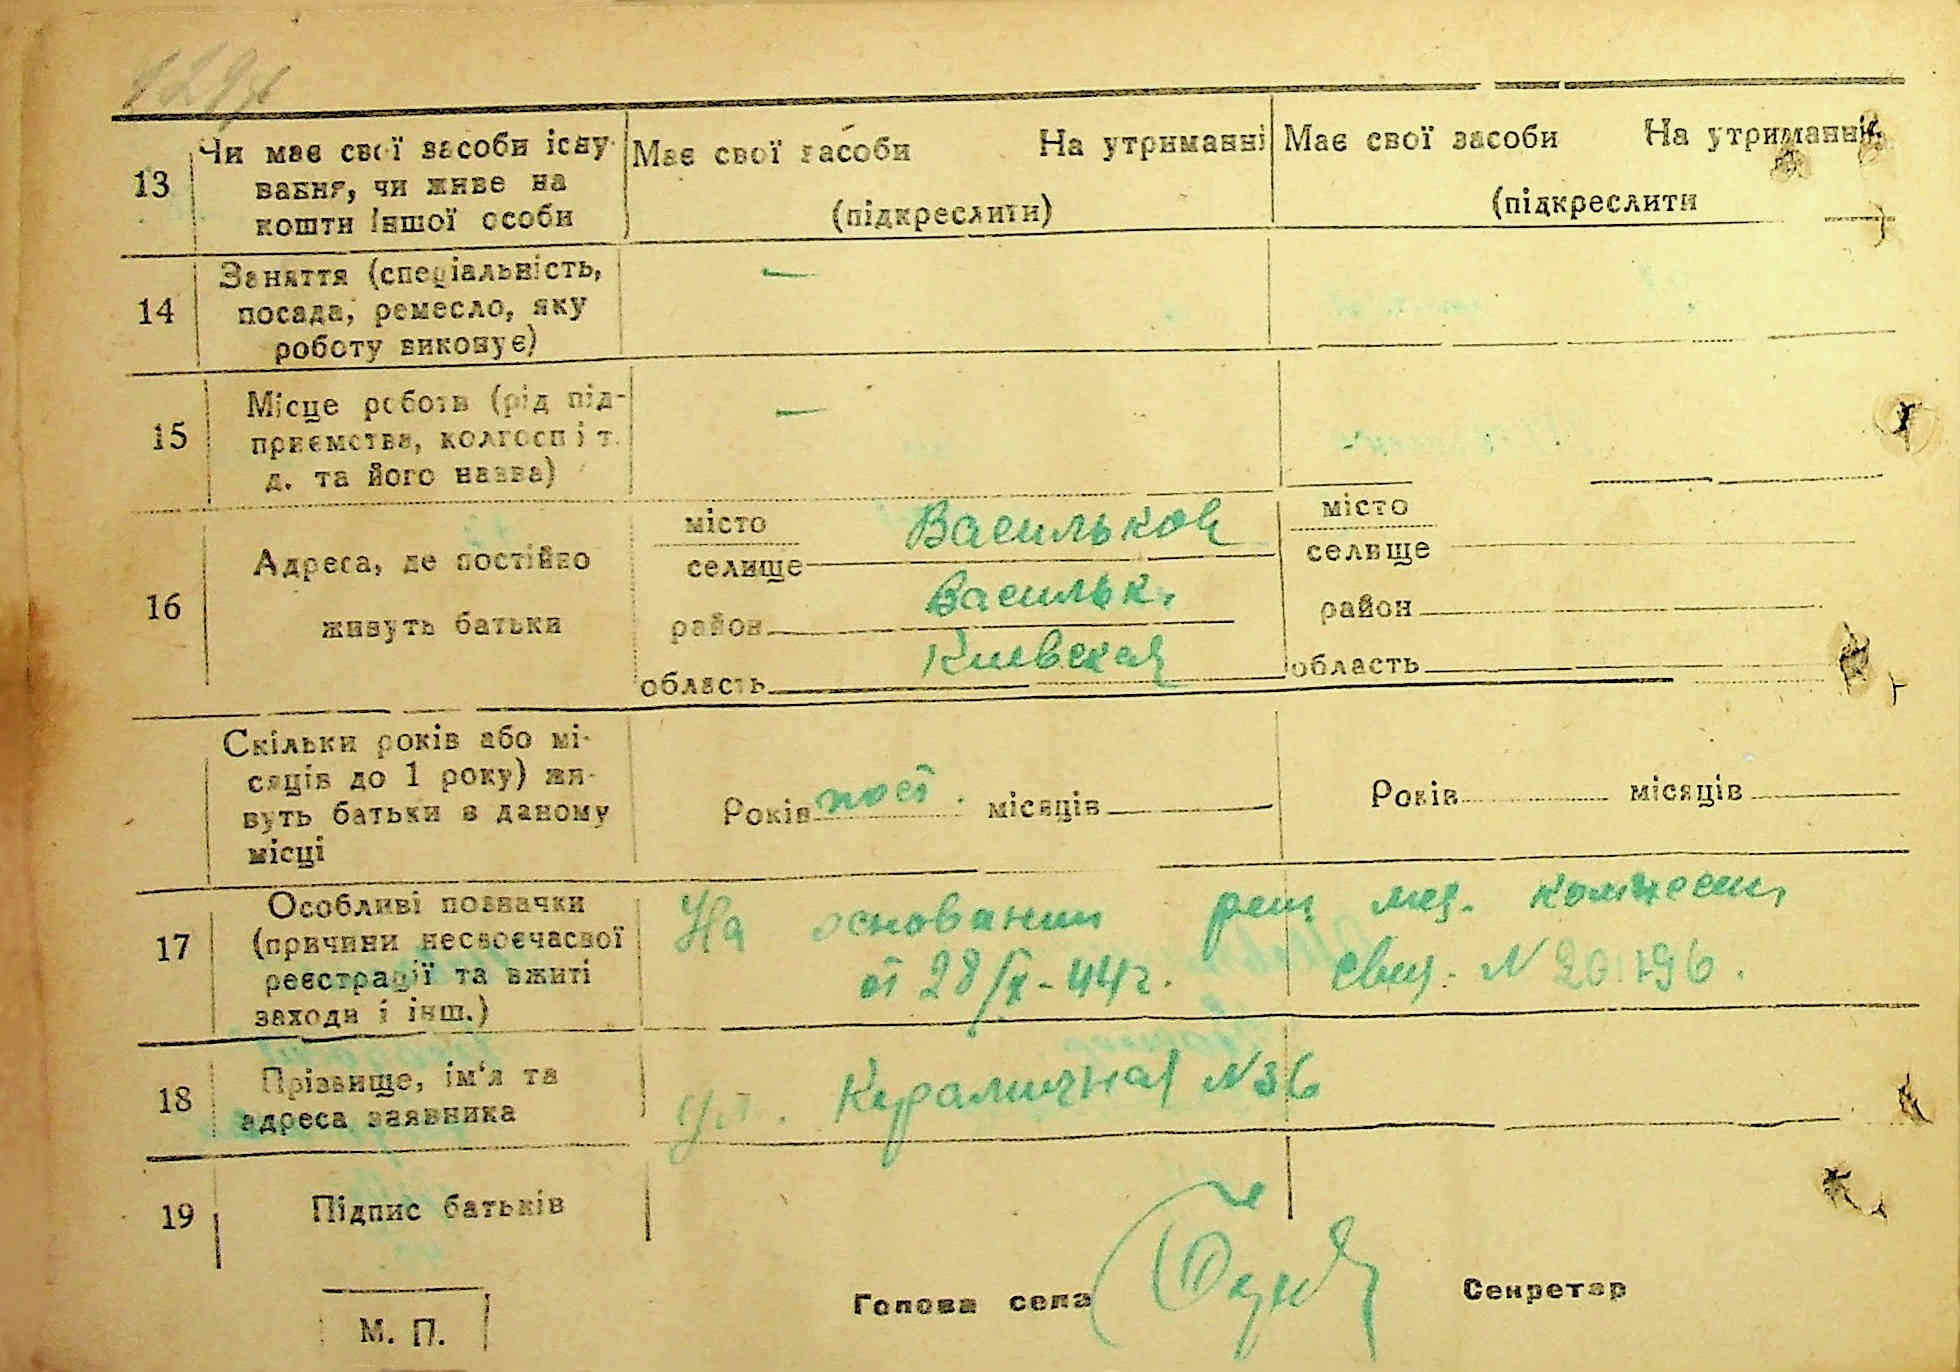 129
13 Чи має свої засоби існу-
вання, чи живе на
кошти іншої особи
Має свої засоби На утриманні
(підкреслити)
Має свої засоби На утриманні
(підкреслити
14 Заняття (спеціальність,
посада, ремесло, яку
роботу виконує)
—
15 Місце роботи (рід під-
приємства, колгосп і т.
д. та його назва)
—
16 Адреса, де постійно
живуть батьки
місто Васильков
селище
район Васильк.
область Киевская
місто
селище
район
область
Скільки років або мі-
сяців до 1 року) жи-
вуть батьки в даному
місці
Років пост. місяців
Років місяців
17 Особливі позначки
(причини несвоєчасної
реєстрації та вжиті
заходи і інш.)
На основании реш мед. комиссии
от 28/X-44г. свид. N 20196.
18 Прізвище, ім'я та
адреса заявника
ул. N36
19 Підпис батьків
М. П.
Голова села
Секретар